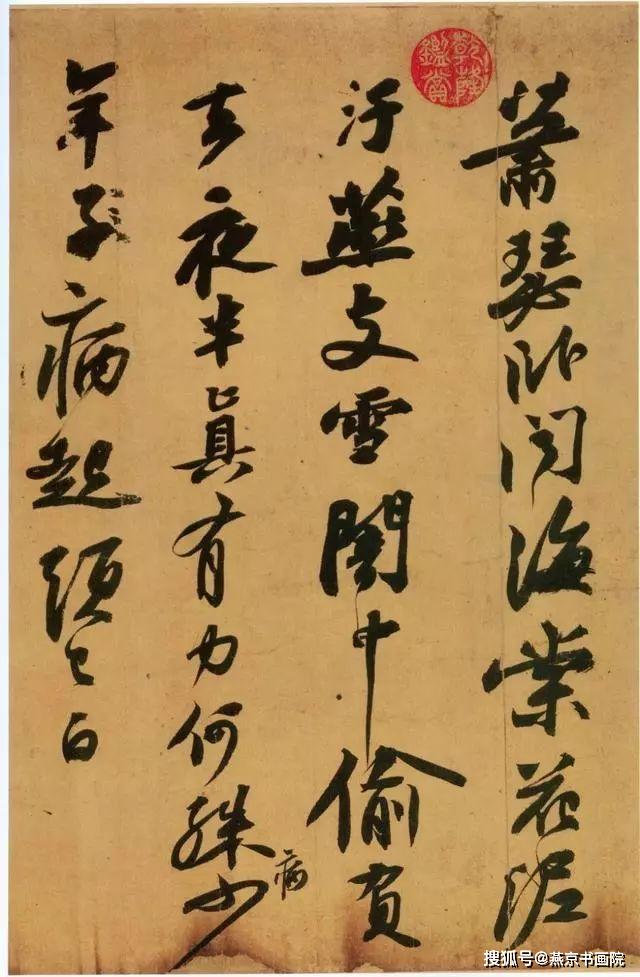 乾隆鑑賞
蕭瑟卧聞海棠花泥
汙燕支雪闇中偷負
去夜半真有力何殊病少
年子病起頭已白
搜狐号@燕京书画院